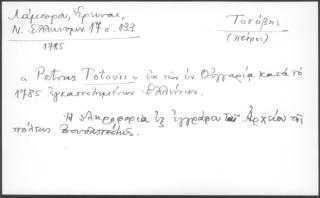 Λάμπρου, Ἔρευναι,
Ν. Ἑλληνομν. 17ος σ. 133
1785
Τοτόβης
(Πέτρος)
α Petrus Totovics ἐκ τῶν ἐν Οὑγγαρίᾳ κατὰ τό
1785 ἐγκατεστημένων Ἑλλήνων.
Ἡ πληροφορία ἐξ ἐγγράφου τοῦ Ἀρχείου τῆς
πόλεως Βουδαπέστης.